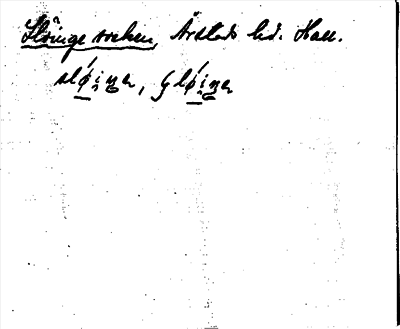 Slöinge socken, Årstads hd. Hall.
slǿi̯ŋa, Slǿi̯ŋa